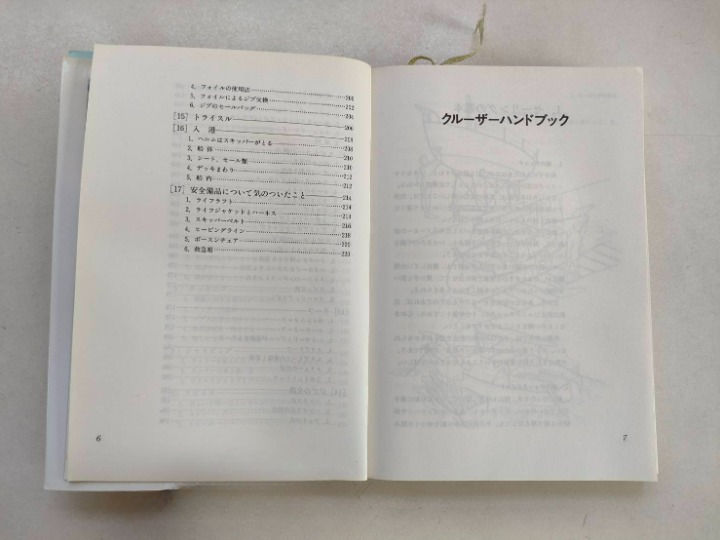 4. フォイルの使用法……201
5. フォイルによるジブ交換……202
6. ジブのセールバッグ……204
[15] トライスル……206
[16] 入港……218
1. ヘルムはスキッパーがとる……208
2. 船務……210
3. シート、セール類……210
4. デッキまわり……211
5. 船内……212
[17] 安全備品について気のついたこと……214
1. ライフラフト……214
2. ライフジャケットとハーネス……214
3. スキッパーベルト……216
4. ヒービングライン……219
5. ボースンチェア……221
6. 救急箱……223
6
クルーザーハンドブック
7